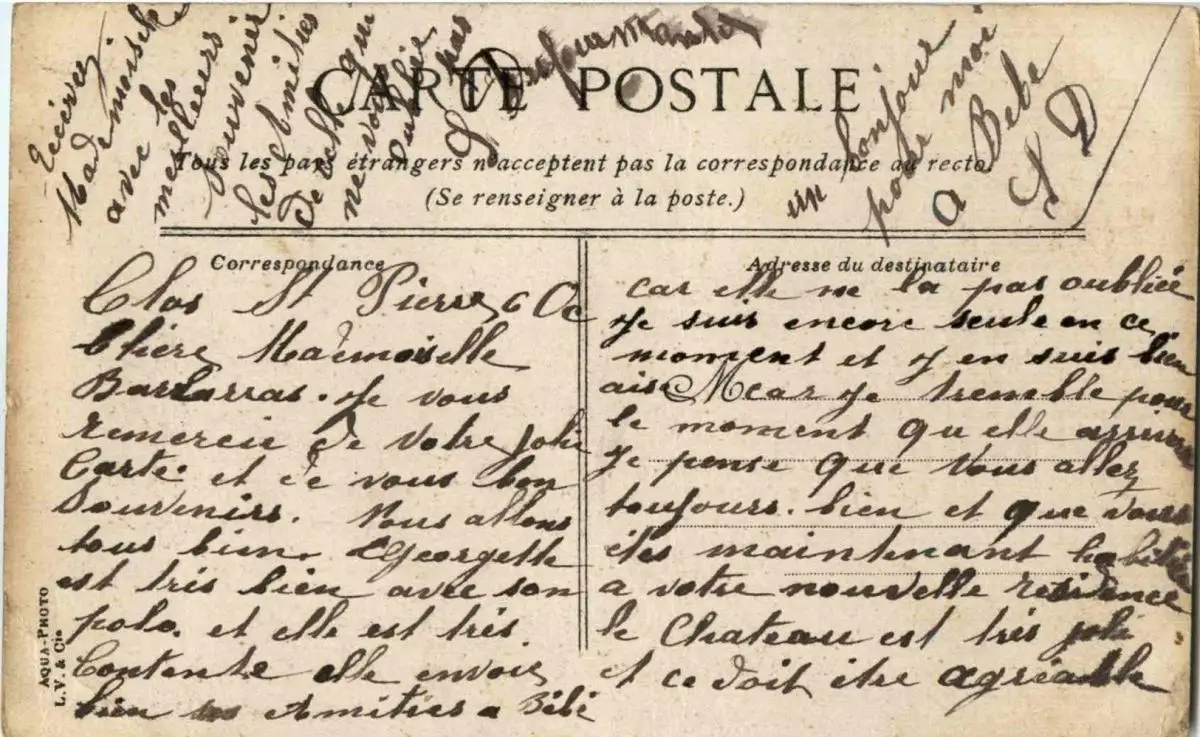 CARTE POSTALE
Tous les pays étrangers n'acceptent pas la correspondance au recto.
(Se renseigner à la poste.)
Correspondance
Clos St Pierre 6 Oc
Chère Mademoiselle
Barbarras. Je vous
remercie de votre jolie
Carte. et de vous bon
Souvenirs. Nous allons
tous bien. Georgette
est très bien avec son
polo. et elle est très
Contente elle envoie
bien ses Amitiés a Bébé
Adresse du destinataire
car elle ne la pas oubliée
Je suis encore seule en ce
moment et j en suis bien
aise M car je tremble pour
le moment qu elle arrivera
Je pense que vous allez
toujours. bien et que vous
êtes maintenant habituée
a votre nouvelle résidence
le Chateau est très joli
et ce doit être agréable
Recevez
Mademoiselle
avec les
meilleurs
Souvenir
les Amitiés
De celle qui
ne vous
oublie
pas
un bonjour
pour moi
a Bebe
S D
AQUA-PHOTO
L.V. & Cie